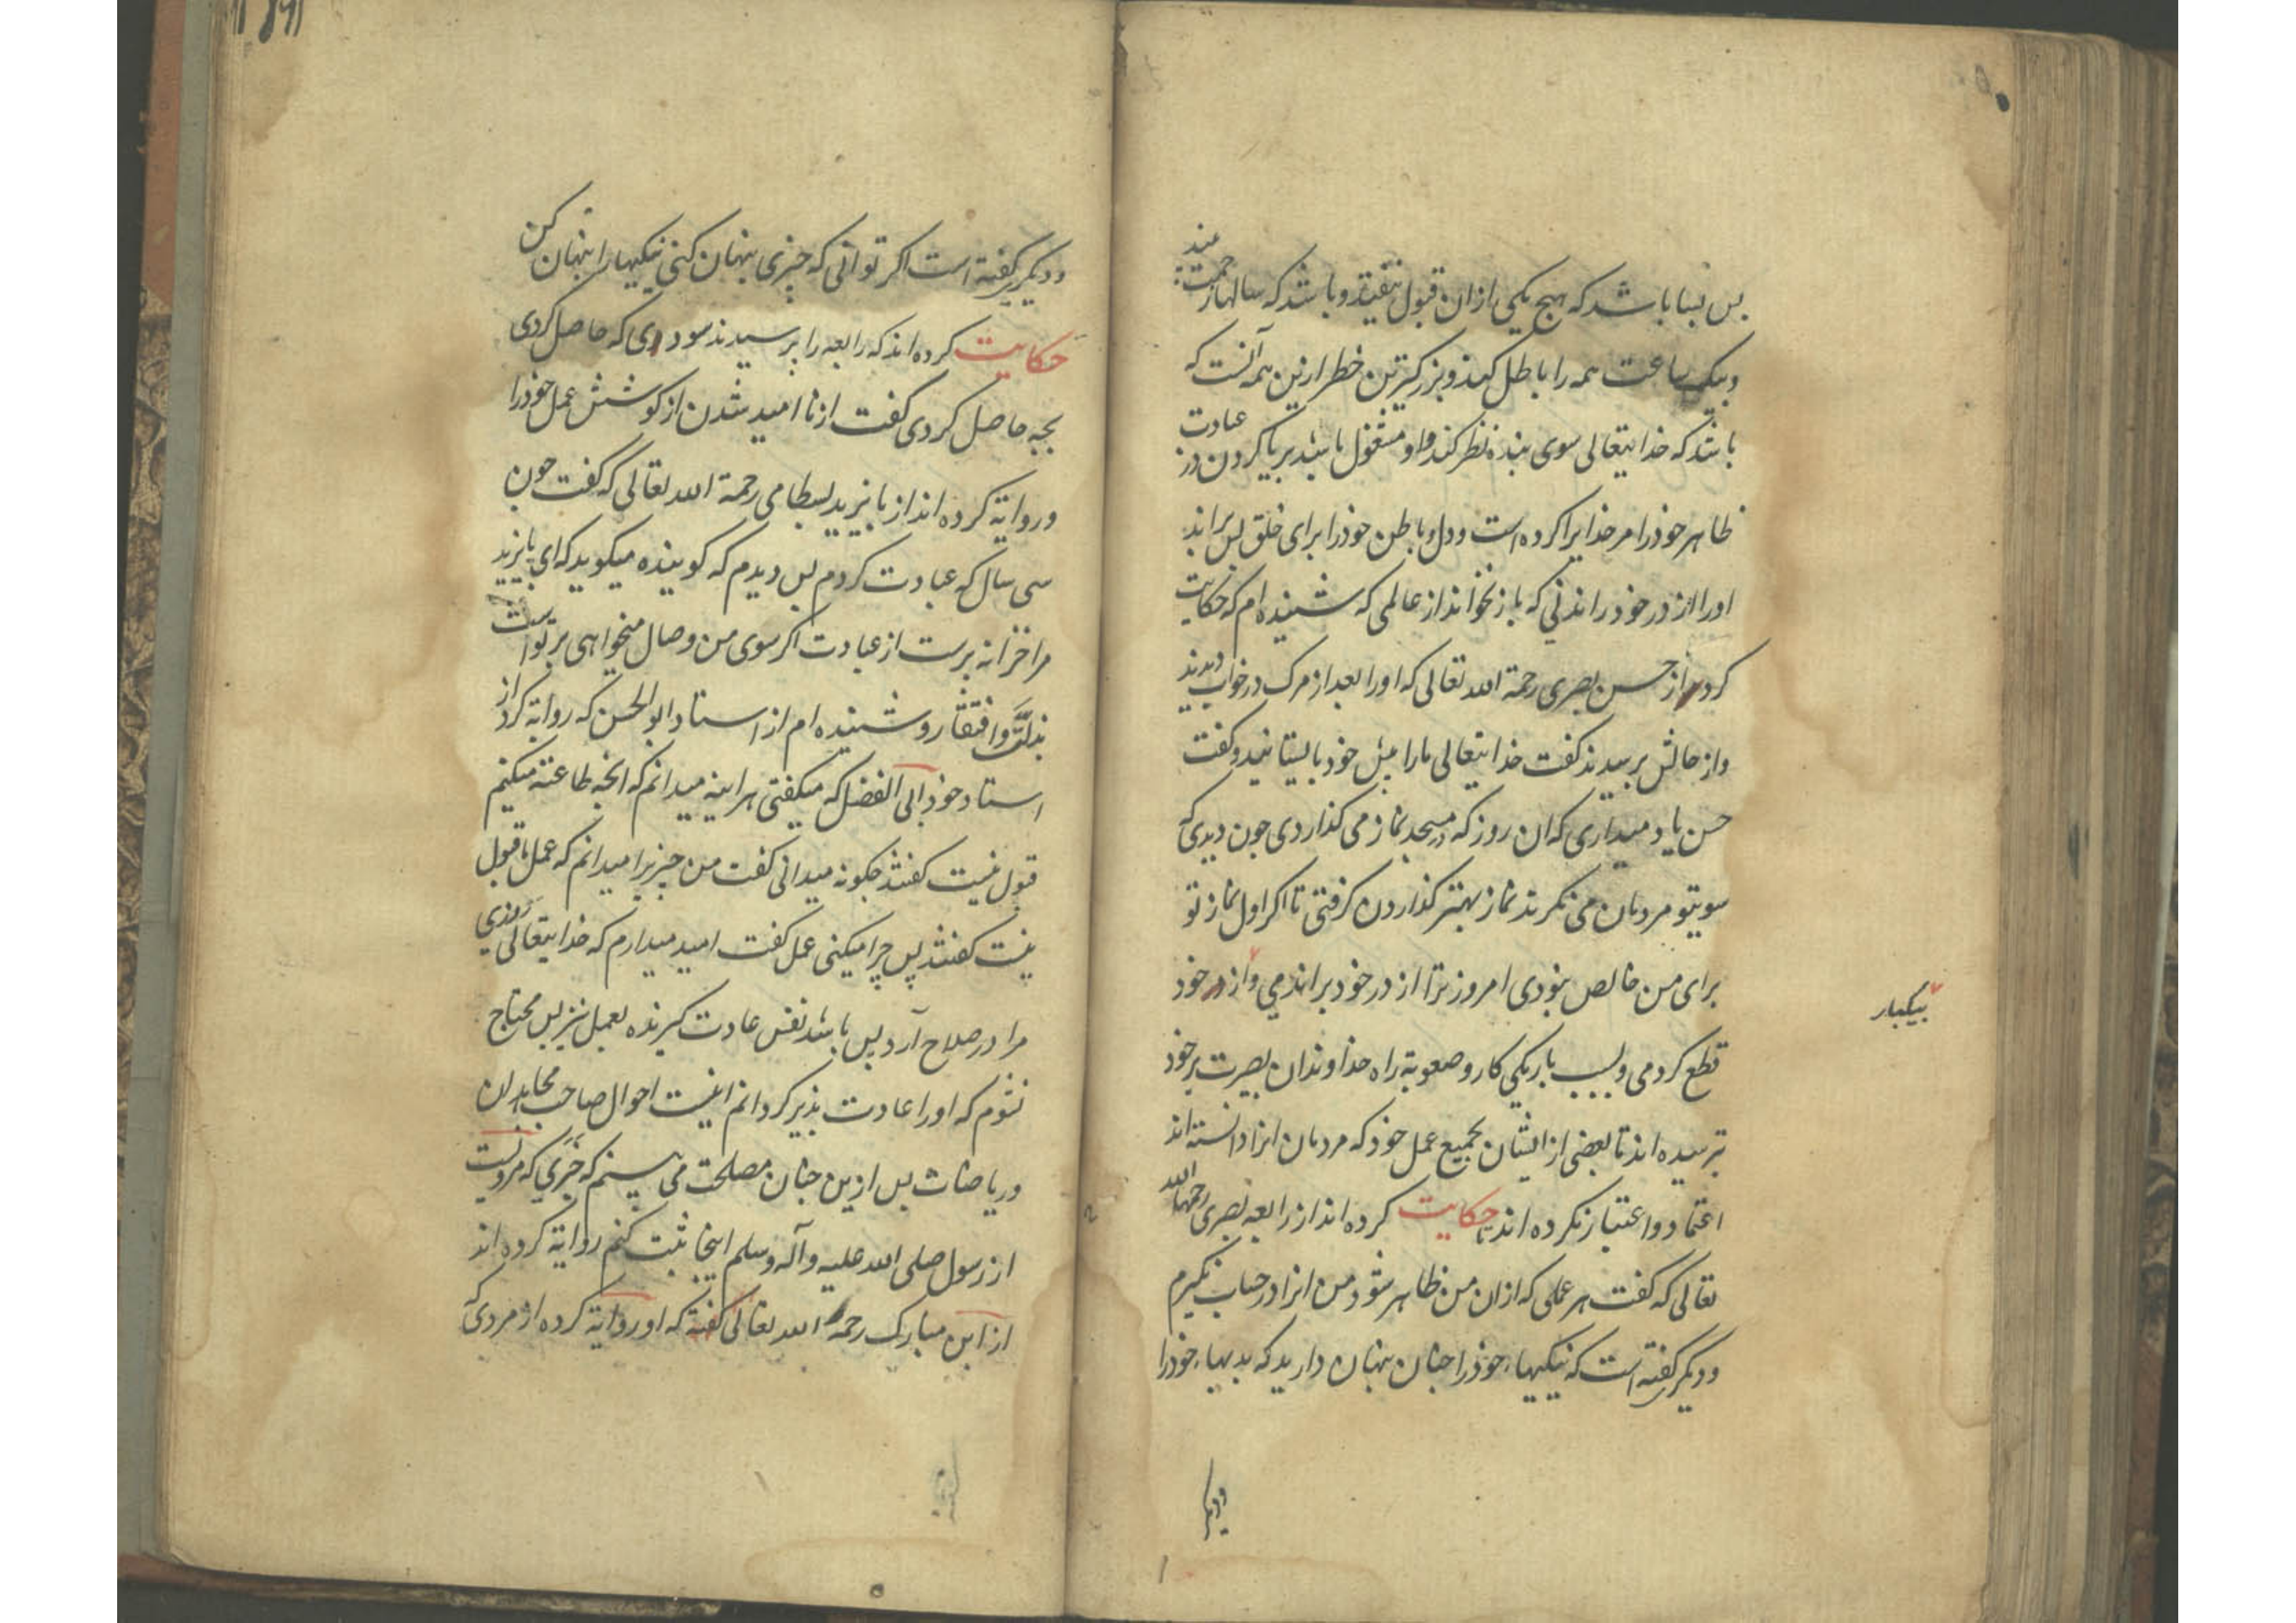 پس بسا باشد که هیچ یکی از ان قبول نیفتد و باشد که سالها زحمت بیند
و بیک ساعت همه را باطل کند و بزرکترین خطر ازین همه آنست که
باشد که خدایتعالی سوی بنده نظر کند و او مشغول باشد بریا کردن در عبادت
ظاهر خود را مر خدایرا کرده است و دل و باطن خود را برای خلق پس براند
او را از در خود راندنی که باز نخواند از عالمی که شنیده ام که حکایت
کرد از حسن بصری رحمة الله تعالی که او را بعد از مرک در خواب دیدند
و از حالش پرسیدند کفت خدایتعالی مارا پیش خود بایستانید و کفت
حسن یاد میداری که ان روز که در مسجد نماز می کذاردی چون دیدی که
سویتو مردمان می نکرند نماز بهتر کذاردن کرفتی تا اکر اول نماز تو
برای من خالص نبودی امروز ترا از در خود براندمی و از خود
بیکبار
قطع کردمی و بسبب باریکی کار و صعوبة راه خداوندان بصیرت بر خود
ترسیده اند تا بعضی از ایشان بجمیع عمل خود که مردمان انرا دانسته اند
اعتماد و اعتبار نکرده اند حکایت کرده اند از رابعه بصری رحمها الله
تعالی که کفت هر عملی که از ان من ظاهر شود من انرا در حساب نکیرم
و دیکر کفته است که نیکیهاء خود را چنان پنهان دارید که بدیهاء خود را
و دیکر
و دیکر کفته است اکر توانی که چیزی پنهان کنی نیکیها را پنهان کن
حکایت کرده اند که رابعه را پرسیدند سودی که حاصل کردی
بچه حاصل کردی کفت از نا امید شدن از کوشش عمل خود را
و روایة کرده اند از بایزید بسطامی رحمة الله تعالی که کفت چون
سی سال که عبادت کردم پس دیدم که کوینده میکوید که ای بایزید
مرا خزانه پرست از عبادت اکر سوی من وصال میخواهی بر تو است
بذلّت و افتقار و شنیده ام از استاد ابو الحسن که روایة کرد از
استاد خود ابی الفضل که میکفتی هر اینه میدانم که انچه طاعته میکنم
قبول نیست کفتند چکونه میدانی کفت من چیزیرا میدانم که عمل با قبول
نیست کفتند پس چرا میکنی عمل کفت امید میدارم که خدایتعالی روزی
مرا در صلاح آرد پس باشد نفس عادت کیرنده بعمل نیز پس محتاج
نشوم که او را عادت پذیر کردانم اینست احوال صاحب مجاهدان
و ریاضات پس ازین چنان مصلحت می بینم که خبری که مرویست
از رسول صلی الله علیه و آله و سلم اینجا ثبت کنم روایة کرده اند
از ابن مبارک رحمة الله تعالی کفته که او روایة کرده از مردی که